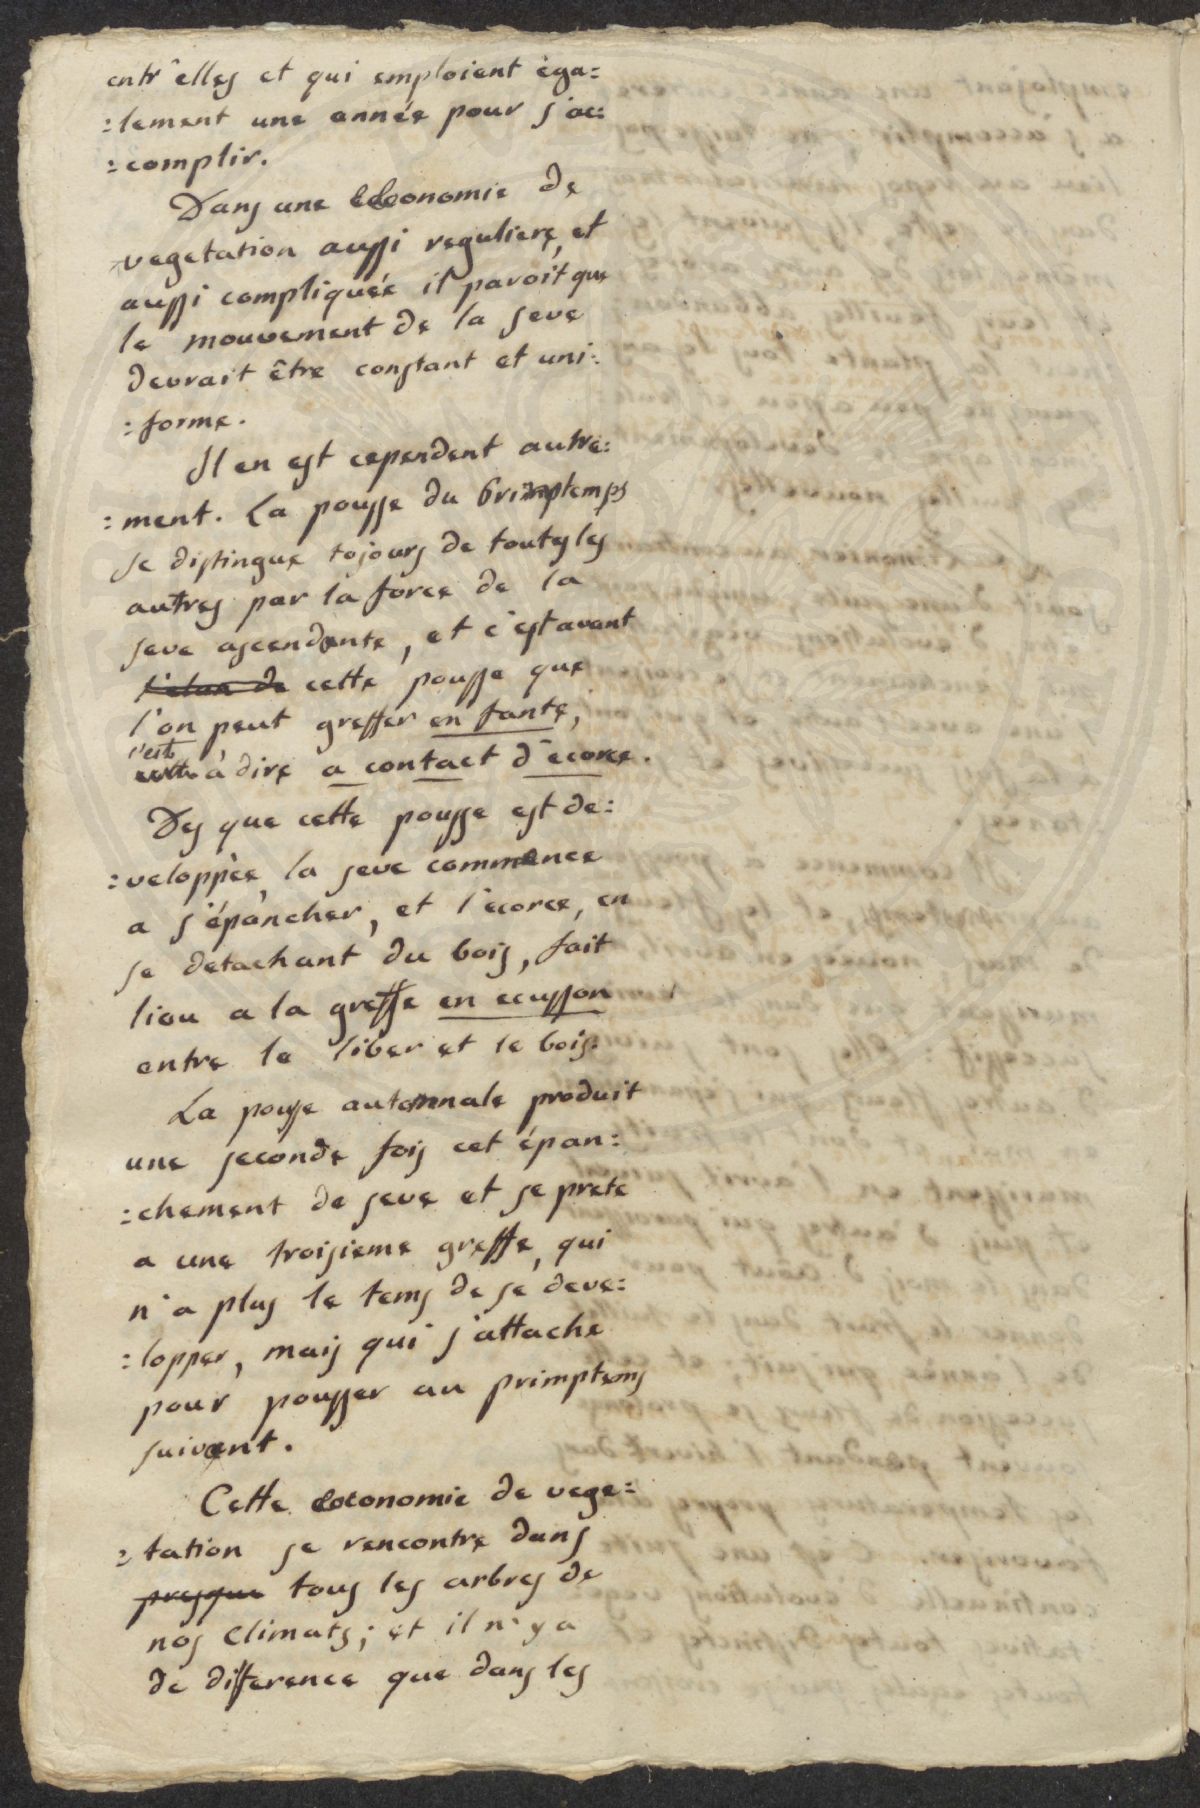 entr'elles et qui emploient éga=
=lement une année pour s'ac=
=complir.
Dans une œconomie de
vegetation aussi reguliere, et
aussi compliquée il paroît que
le mouvement de la seve
devrait être constant et uni=
=forme.
Il en est cependent autre=
=ment. La pousse du primptemps
se distingue tojours de toutes les
autres par la force de la
seve ascendente, et c'est avant
cette pousse que
l'on peut greffer en fante,
c'est
à dire a contact d'ecorce.
Des que cette pousse est de=
=veloppée, la seve commence
a s'épancher, et l'ecorce, en
se detachant du bois, fait
liou a la greffe en ecusson
entre le liber et le bois.
La pousse automnale produit
une seconde fois cet épan=
=chement de seve et se prete
a une troisieme greffe, qui
n'a plus le tems de se deve=
=lopper, mais qui s'attache
pour pousser au primptems
suivant.
Cette œconomie de vege=
=tation se rencontre dans
presque tous les arbres de
nos climats; et il n'y a
de difference que dans les